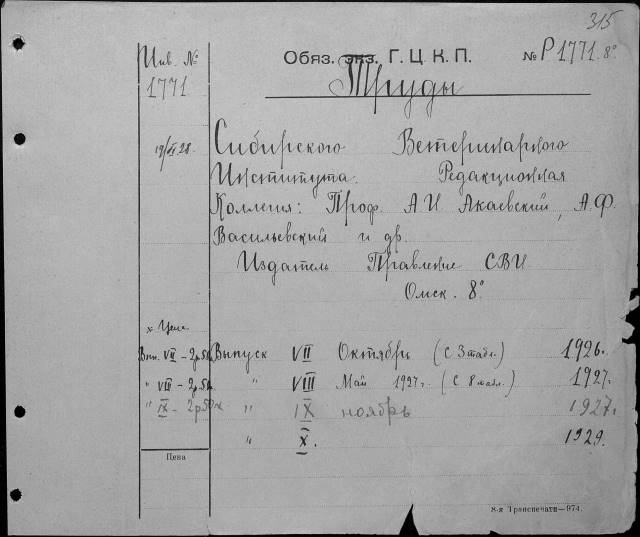 315
Инв. №
1771
Обяз. экз. Г. Ц. К. П.
№ Р1771. 8°
Труды
19/XI 28.
Сибирского Ветеринарного
Института. Редакционная
Коллегия: Проф. А И Акаевский, А.Ф.
Васильевский и др.
Издатель Правление СВИ
Омск. 8°
х Цена
Вып. VII – 2р.50к Выпуск VII Октябрь (с 3 табл.) 1926 г.
" VIII – 2р.50к " VIII Май 1927 г. (с 8 табл.) 1927 г.
" IX – 2р50к " IX ноябрь 1927 г
" X. 1929.
Цена
8-я Транспечати—974.